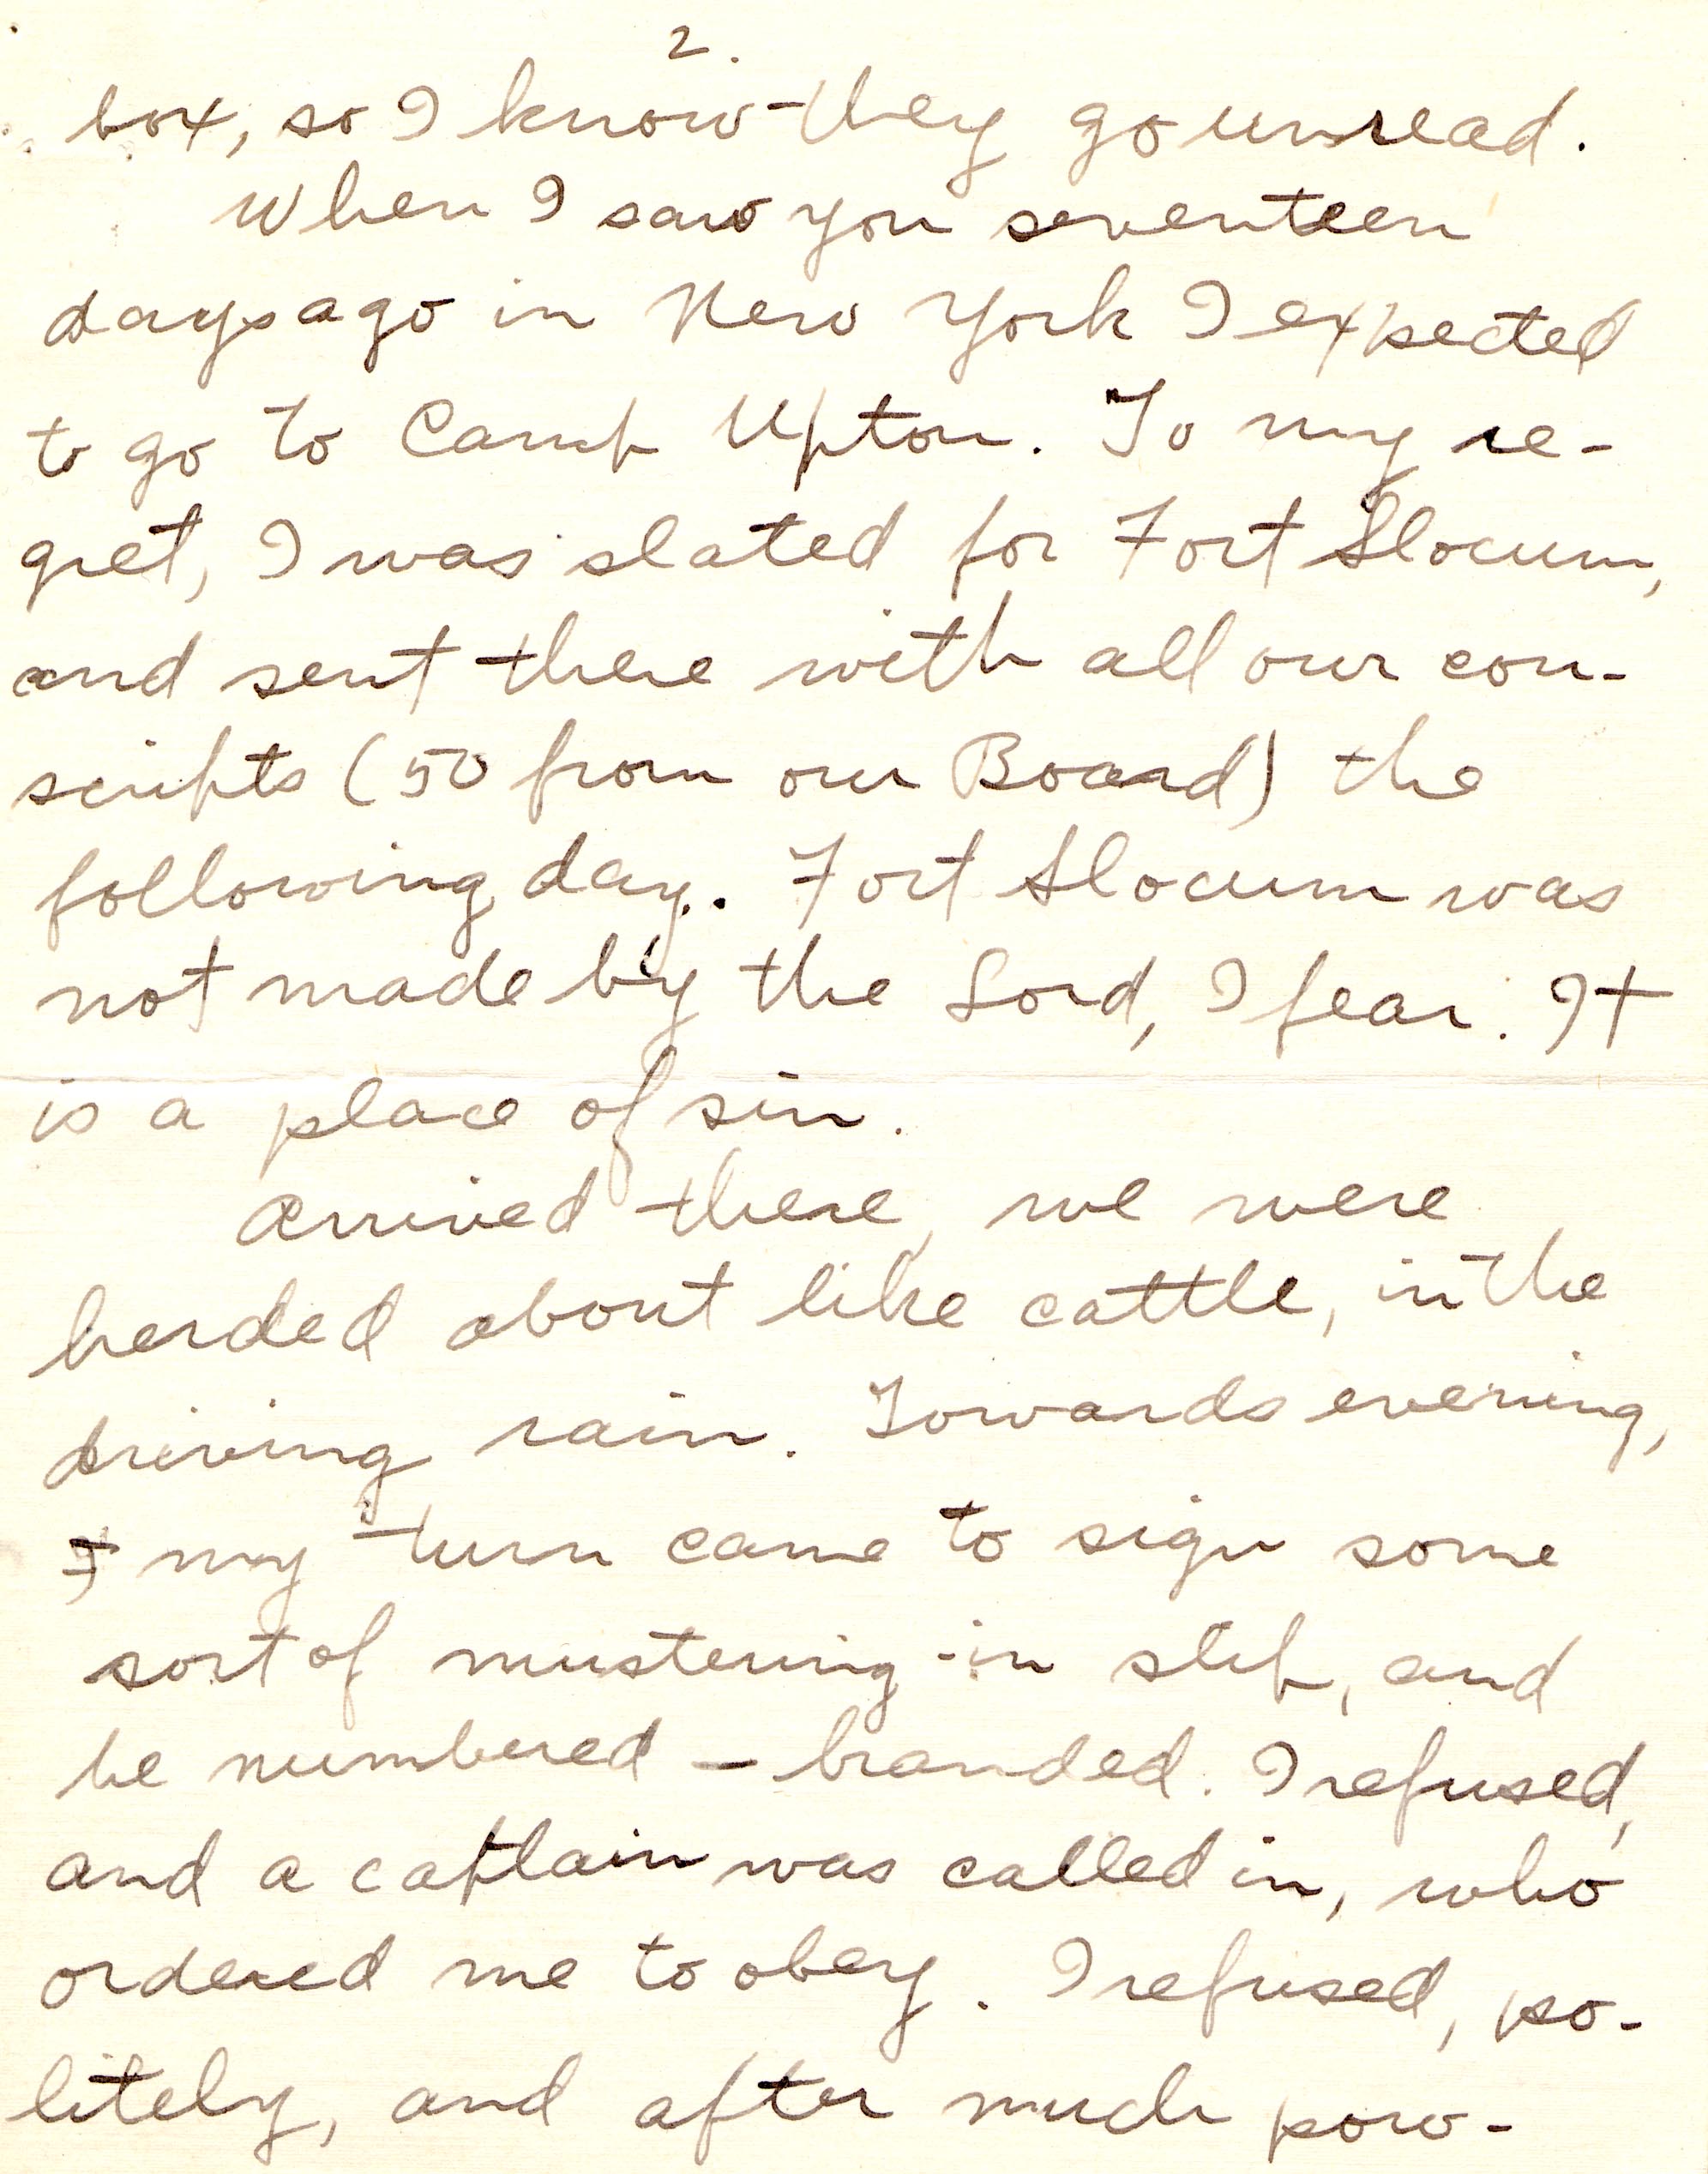 2.
box, so I know they go unread.
When I saw you seventeen
days ago in New York I expected
to go to Camp Upton. To my re-
gret, I was slated for Fort Slocum,
and sent there with all our con-
scripts (50 from our Board) the
following day. Fort Slocum was
not made by the Lord, I fear. It
is a place of sin.
Arrived there, we were
herded about like cattle, in the
driving rain. Towards evening,
my turn came to sign some
sort of mustering-in slip, and
be numbered - branded. I refused,
and a captain was called in, who
ordered me to obey. I refused, po-
litely, and after much pow-